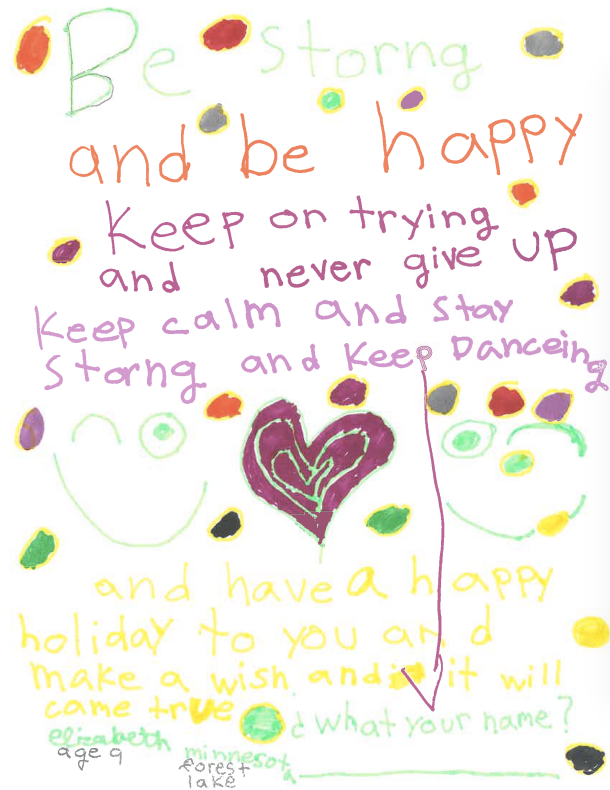 Be Storng
and be happy
Keep on trying
and never give up
Keep calm and stay
Storng and Keep Danceing
and have a happy
holiday to you and
make a wish and it will
came true
¿what your name?
elizabeth
age 9
minnesota
forest
lake